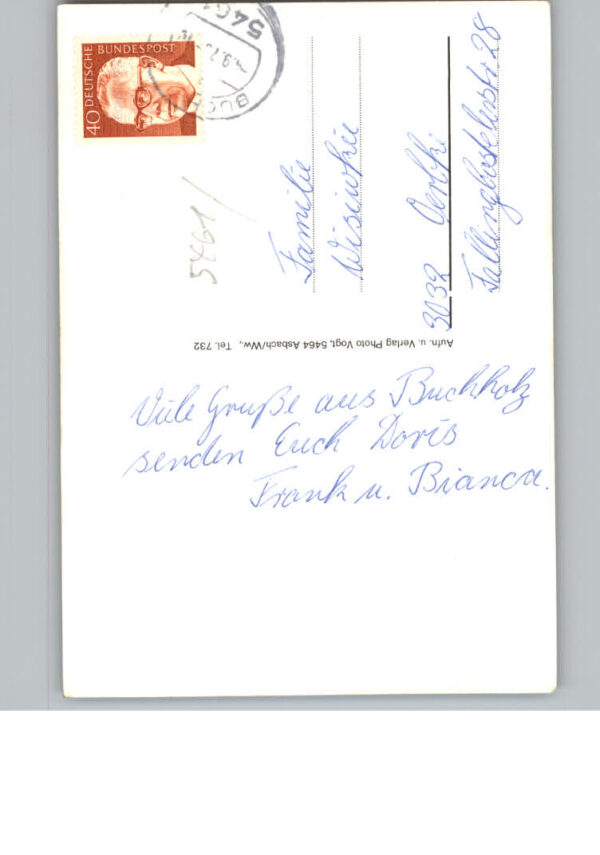 Viele Grüße aus Buchholz
senden Euch Doris
Frank u. Bianca.
Aufn. u. Verlag Photo Vogt, 5464 Asbach/Ww., Tel. 732
40 DEUTSCHE BUNDESPOST
5461
BUCH
5461/
Familie
3032
Fallingbostelerstr 28